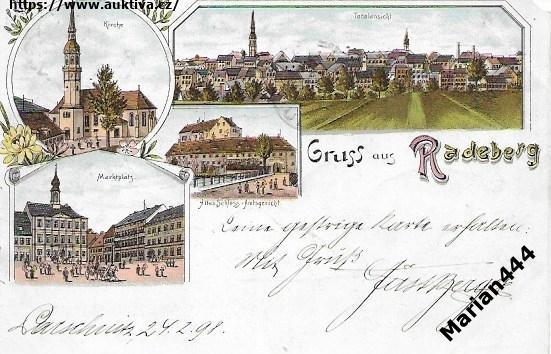 https://www.auktiva.cz/
Kirche
Totalansicht
Altes Schloss - Amtsgericht
Marktplatz
Gruss aus Radeberg
gestrige Karte erhalten.
Mit Gruß
24.2.98.
Marian444